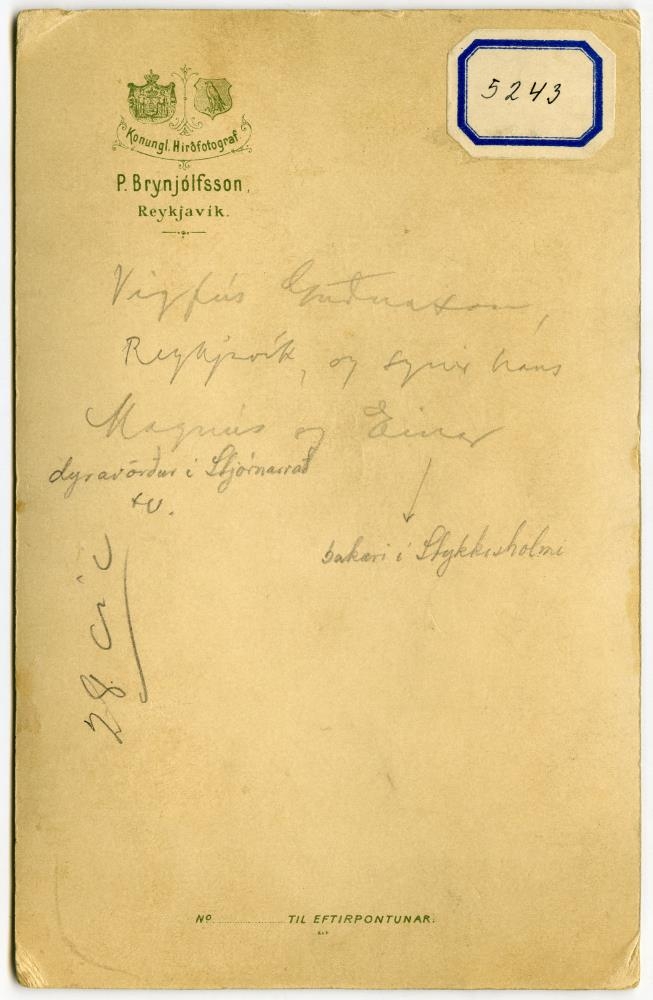 5243
Konungl. Hirðfotograf
P. Brynjólfsson,
Reykjavík.
Vigfús Guðnason,
Reykjavík, og synir hans
Magnús og Einar
dyravörður í Stjórnarráð
bakari í Stykkishólmi
28
No TIL EFTIRPONTUNAR.